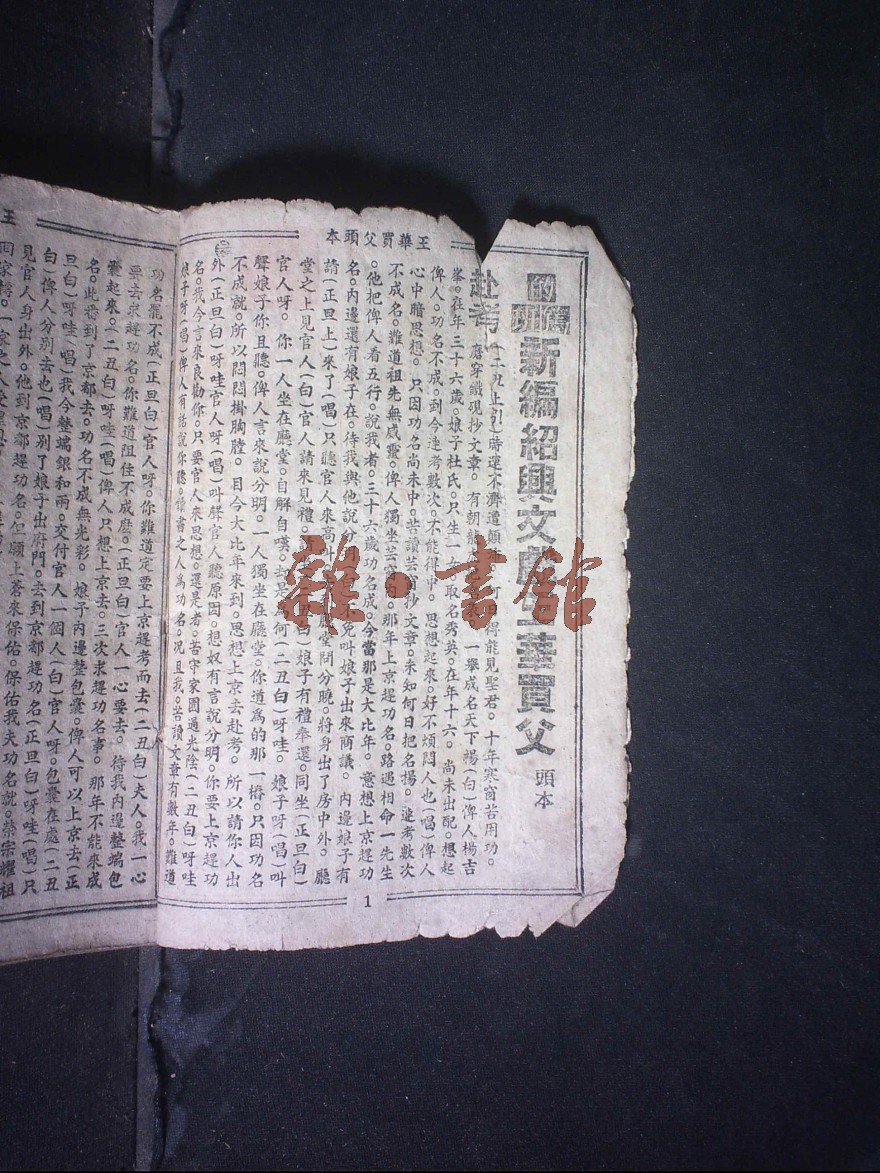 王華買父頭本
新編紹興文戲王華買父 頭本
赴考(二丑上引)時運不濟遭顛 得能見聖君。十年寒窗苦用功。
磨穿鐵硯抄文章。有朝龍 一舉成名天下揚(白)俾人楊吉
峯。在年三十六歲。娘子杜氏。只生一女取名秀英。在年十六。尚未出配。想起
俾人。功名不成。到今連考數次。不能得中。思想起來。好不煩悶人也(唱)俾人
心中暗思想。只因功名尚未中。苦讀芸窗抄文章。未知何日把名揚。連考數次
不成名。難道祖先無威靈。俾人獨坐芸窗 。那年上京趕功名。路遇相命一先生
。他把俾人看五行。說我者。三十六歲功名成。今當那是大比年。意想上京趕功
名。內邊還有娘子在。待我與他說分 免叫娘子出來商議。內邊娘子有
請(正旦上)來了(唱)只聽官人來高叫 堂問分曉。將身出了房中外。廳
堂之上見官人(白)官人請來見禮。 旦白)娘子有禮奉還。同坐(正旦白)
官人呀。你一人坐在廳堂。自解自嘆。去是為何(二丑白)呀哇。娘子呀(唱)叫
聲娘子你且聽。俾人言來說分明。一人獨坐在廳堂。你道為的那一樁。只因功名
不成就。所以悶悶掛胸膛。目今大比年來到。思想上京去赴考。所以請你人出
外(正旦白)呀哇官人呀(唱)叫聲官人聽原因。想奴有言說分明。你要上京趕功
名。我今言來良勸你。只要官人來思想。還是者。苦守家園過光陰(二丑白)呀哇
娘子呀(唱)俾人有話說你聽。讀書之人為功名。況且我。苦讀文章有數年。難道
1
王
功名罷不成(正旦白)官人呀。你難道定要上京趕考而去(二丑白)夫人。我一心
要去求趕功名。你難道阻住不成麼。(正旦白)官人一心要去。待我內邊整端包
囊起來。(二丑白)呀哇(唱)俾人只想上京去。三次求趕功名事。那年不能來成
名。此番到了京都去。功名不成無光彩。娘子內邊整包囊。俾人可以上京去(正
旦白)呀哇(唱)我今整端銀和兩。交付官人一個人(白)官人呀。包囊在處(二丑
白)俾人分別去也(唱)別了娘子出府門。去到京都趕功名(正旦白)呀哇(唱)只
見官人身出外。他到京都趕功名。但願上蒼來保佑。保佑我夫功名就。榮宗耀祖
回家轉。一家之人
雜·書館